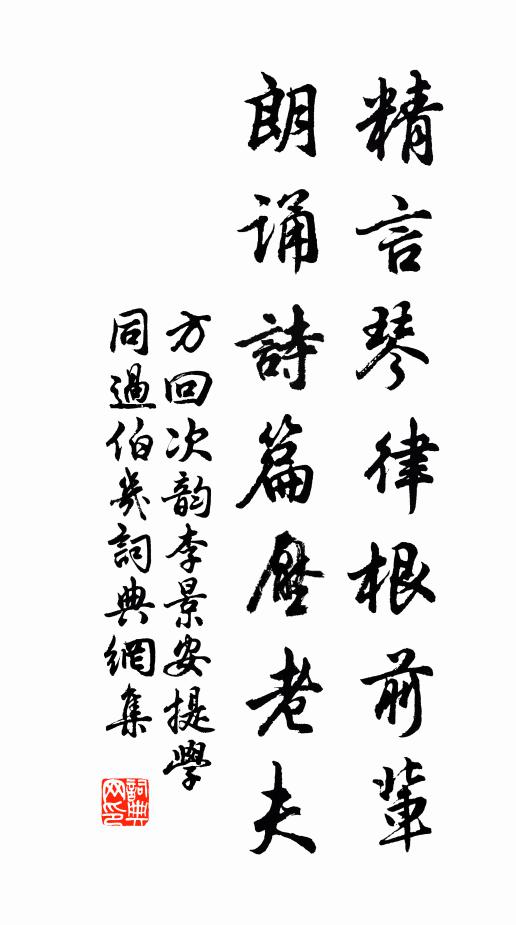 精言琴律根前輩
朗誦詩篇壓老夫
方回次韵李景安提學
同過伯幾詞典網集
詞典
网印